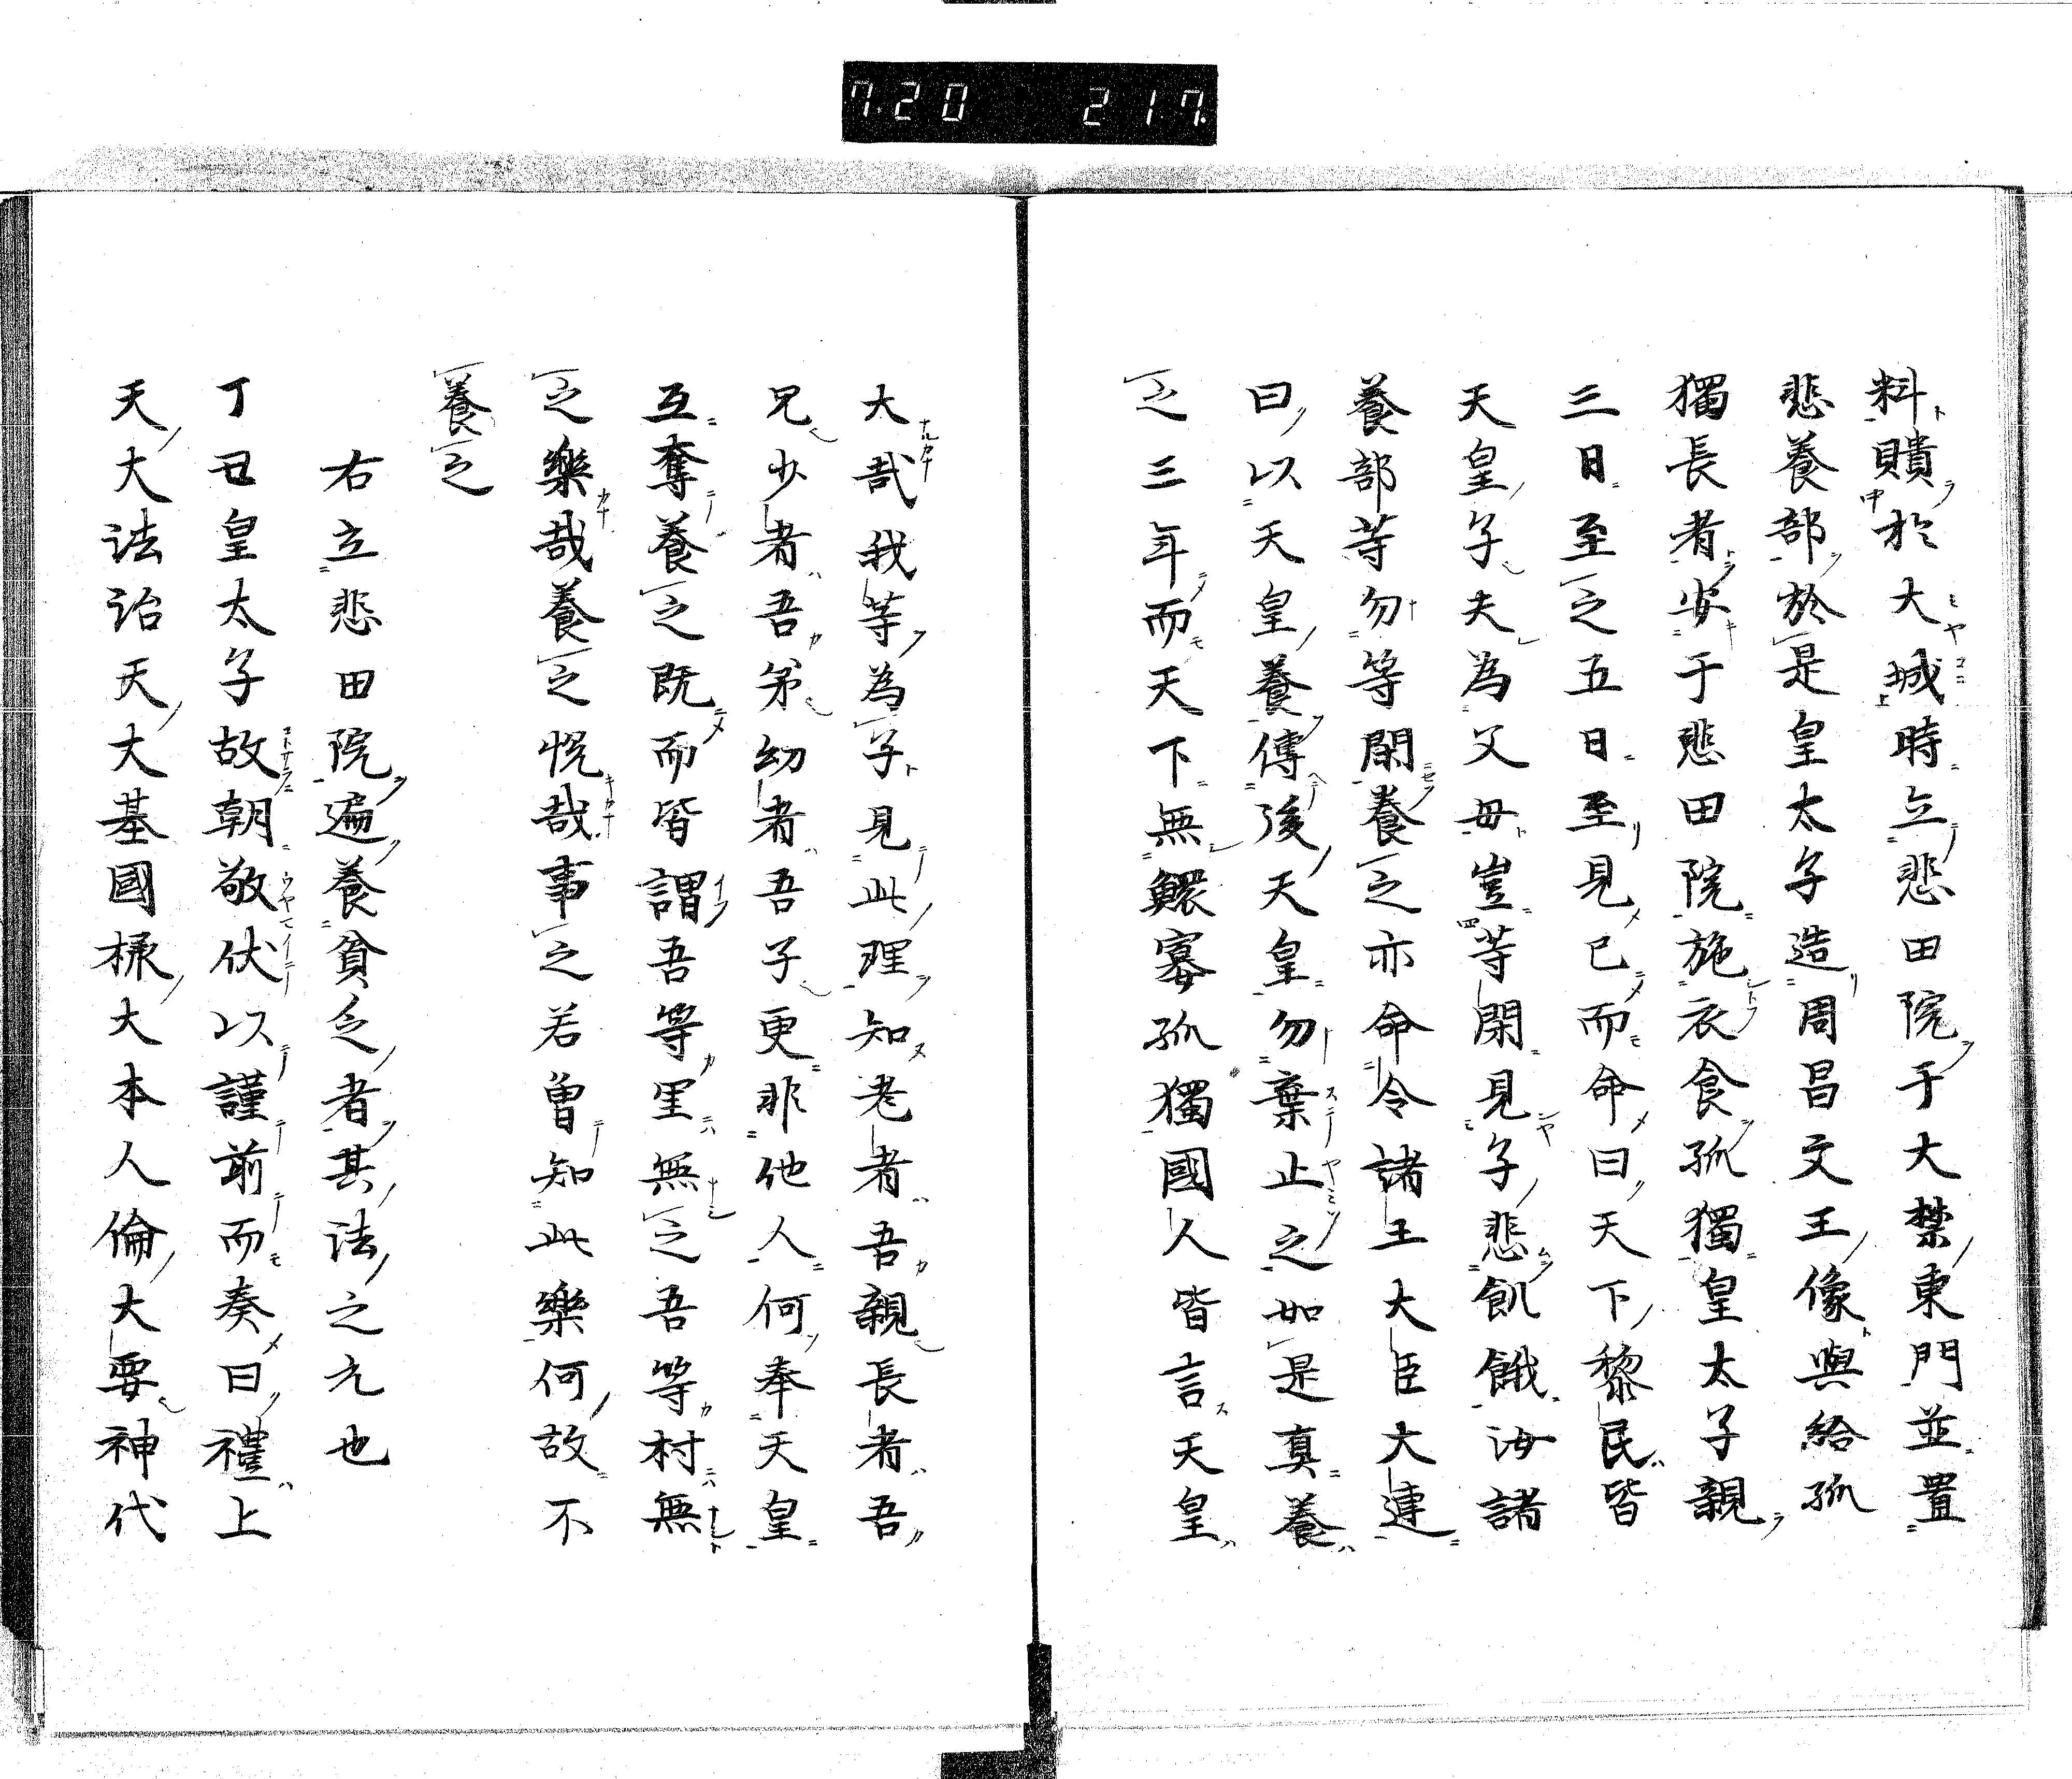 7.20 217.
料䝿於大城時立悲田院于大禁東門並置
悲養部於是皇太子造周昌文王像與給孤
獨長者安于悲田院施衣食孤獨皇太子親
三日至之五日至見已而命曰天下黎民皆
天皇子夫為父毋豈等閑見子悲飢餓汝諸
養部等勿等閑養之亦命令諸王大臣大連
曰以天皇養傳後天皇勿棄止之如是真養
之三年而天下無鰥寡孤獨國人皆言天皇
大哉我等為子見此理知老者吾親長者吾
兄少者吾弟幼者吾子更非他人何奉天皇
互奪養之既而皆謂吾等里無之吾等村無
之樂哉養之悦哉事之若曽知此樂何故不
養之
右立悲田院遍養貧乏者其法之元也
丁丑皇太子故朝敬伏以謹前而奏曰禮上
天大法治天大基國㯮大本人倫大要神代